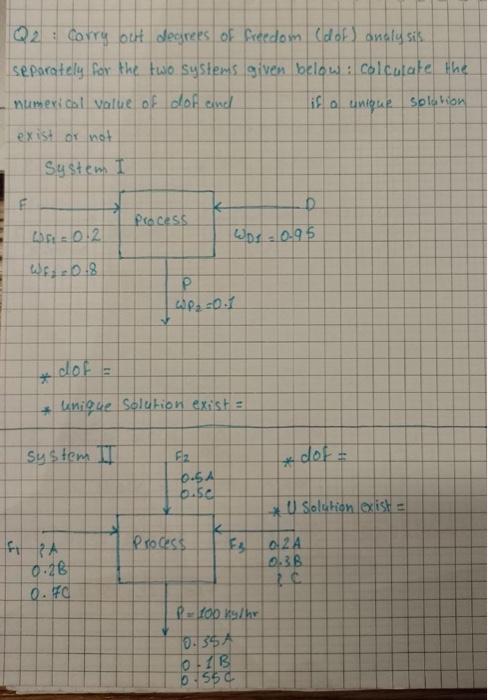 Q2 : Carry out degrees of freedom (dof) analysis
separately for the two systems given below : Calculate the
numerical value of dof and if a unique solution
exist or not
System I
F
D
Process
WF1 = 0.2
WD1 = 0.95
WF2 = 0.8
P
WP2 = 0.1
* dof =
* unique Solution exist =
System II
F2
* dof =
0.5A
0.5C
* U Solution exist =
F1
?A
Process
F3
0.2A
0.2B
0.3B
0.7C
?C
P = 100 kg/hr
0.35A
0.1B
0.55C